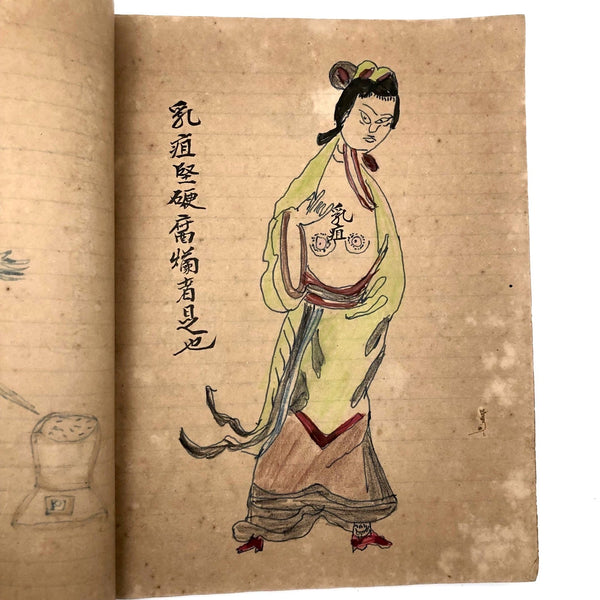 乳疽堅硬腐爛者是也
乳
疽